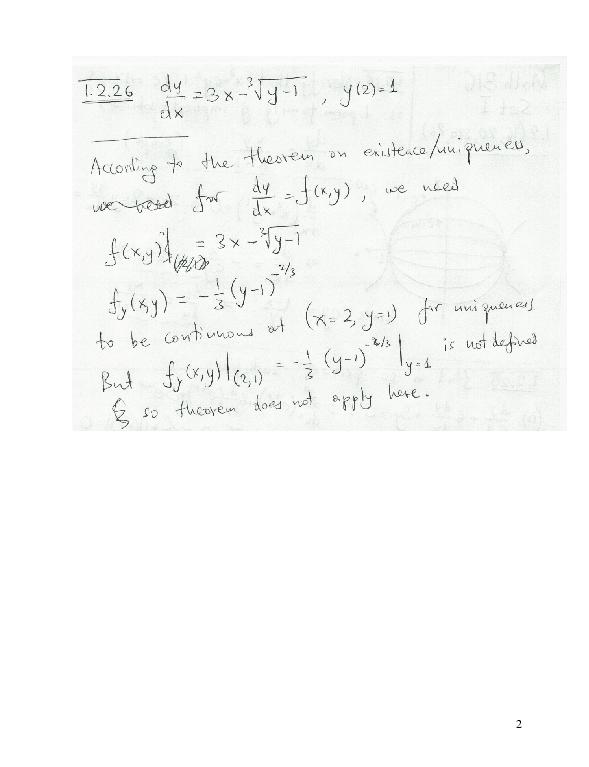 1.2.26 dy/dx = 3x - ∛y-1 , y(2)=1
According to the theorem on existence/uniqueness,
for dy/dx = f(x,y), we need
f(x,y) = 3x - ∛y-1
f_y(x,y) = -1/3 (y-1)^-2/3
to be continuous at (x=2, y=1) for uniqueness
But f_y(x,y)|(2,1) = -1/3 (y-1)^-2/3 |y=1 is not defined
so theorem does not apply here.
2